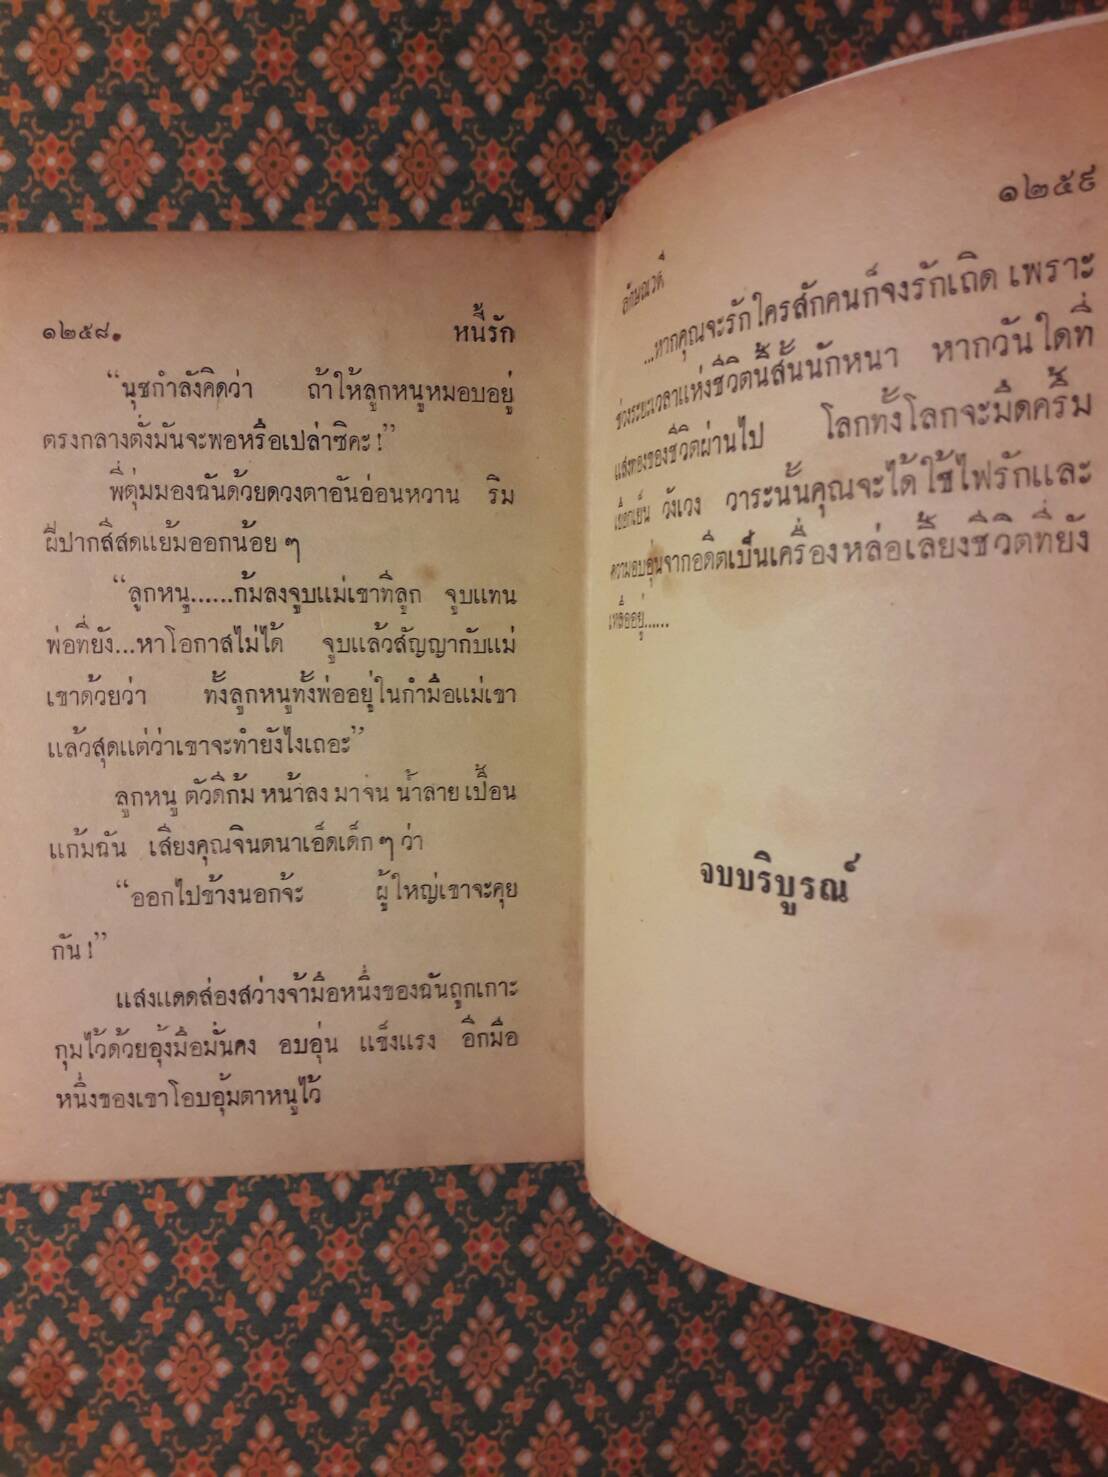 ๑๒๕๘.
หนี้รัก
“นุชกำลังคิดว่า ถ้าให้ลูกหนูหมอบอยู่
ตรงกลางตั่งมันจะพอหรือเปล่าซิคะ !”
พี่ตุ่มมองฉันด้วยดวงตาอันอ่อนหวาน ริม
ฝีปากสีสดแย้มออกน้อย ๆ
“ลูกหนู......ก้มลงจูบแม่เขาทีลูก จูบแทน
พ่อที่ยัง...หาโอกาสไม่ได้ จูบแล้วสัญญากับแม่
เขาด้วยว่า ทั้งลูกหนูทั้งพ่ออยู่ในกำมือแม่เขา
แล้วสุดแต่ว่าเขาจะทำยังไงเถอะ”
ลูกหนู ตัวดีก้ม หน้าลง มาจน น้ำลาย เปื้อน
แก้มฉัน เสียงคุณจินตนาเอ็ดเด็ก ๆ ว่า
“ออกไปข้างนอกจ้ะ ผู้ใหญ่เขาจะคุย
กัน !”
แสงแดดส่องสว่างจ้ามือหนึ่งของฉันถูกเกาะ
กุมไว้ด้วยอุ้งมือมั่นคง อบอุ่น แข็งแรง อีกมือ
หนึ่งของเขาโอบอุ้มตาหนูไว้
๑๒๕๙
...หากคุณจะรักใครสักคนก็จงรักเถิด เพราะ
ช่วงระยะเวลาแห่งชีวิตนี้สั้นนักหนา หากวันใดที่
แสงทองของชีวิตผ่านไป โลกทั้งโลกจะมืดครึ้ม
เยือกเย็น วังเวง วาระนั้นคุณจะได้ใช้ไฟรักและ
ความอบอุ่นจากอดีตเป็นเครื่องหล่อเลี้ยงชีวิตที่ยัง
เหลืออยู่......
จบบริบูรณ์